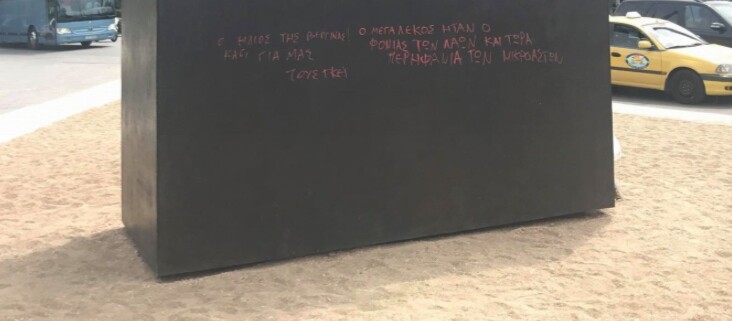 Ο ΗΛΙΟΣ ΤΗΣ ΒΕΡΓΙΝΑΣ
ΚΑΕΙ ΓΙΑ ΜΑΣ
ΤΟΥΣ ΓΚΕΙ
Ο ΜΕΓΑΛΕΚΟΣ ΗΤΑΝ Ο
ΦΟΝΙΑΣ ΤΩΝ ΛΑΩΝ ΚΑΙ ΤΩΡΑ
ΠΕΡΗΦΑΝΙΑ ΤΩΝ ΜΙΚΡΟΑΣΤΩΝ